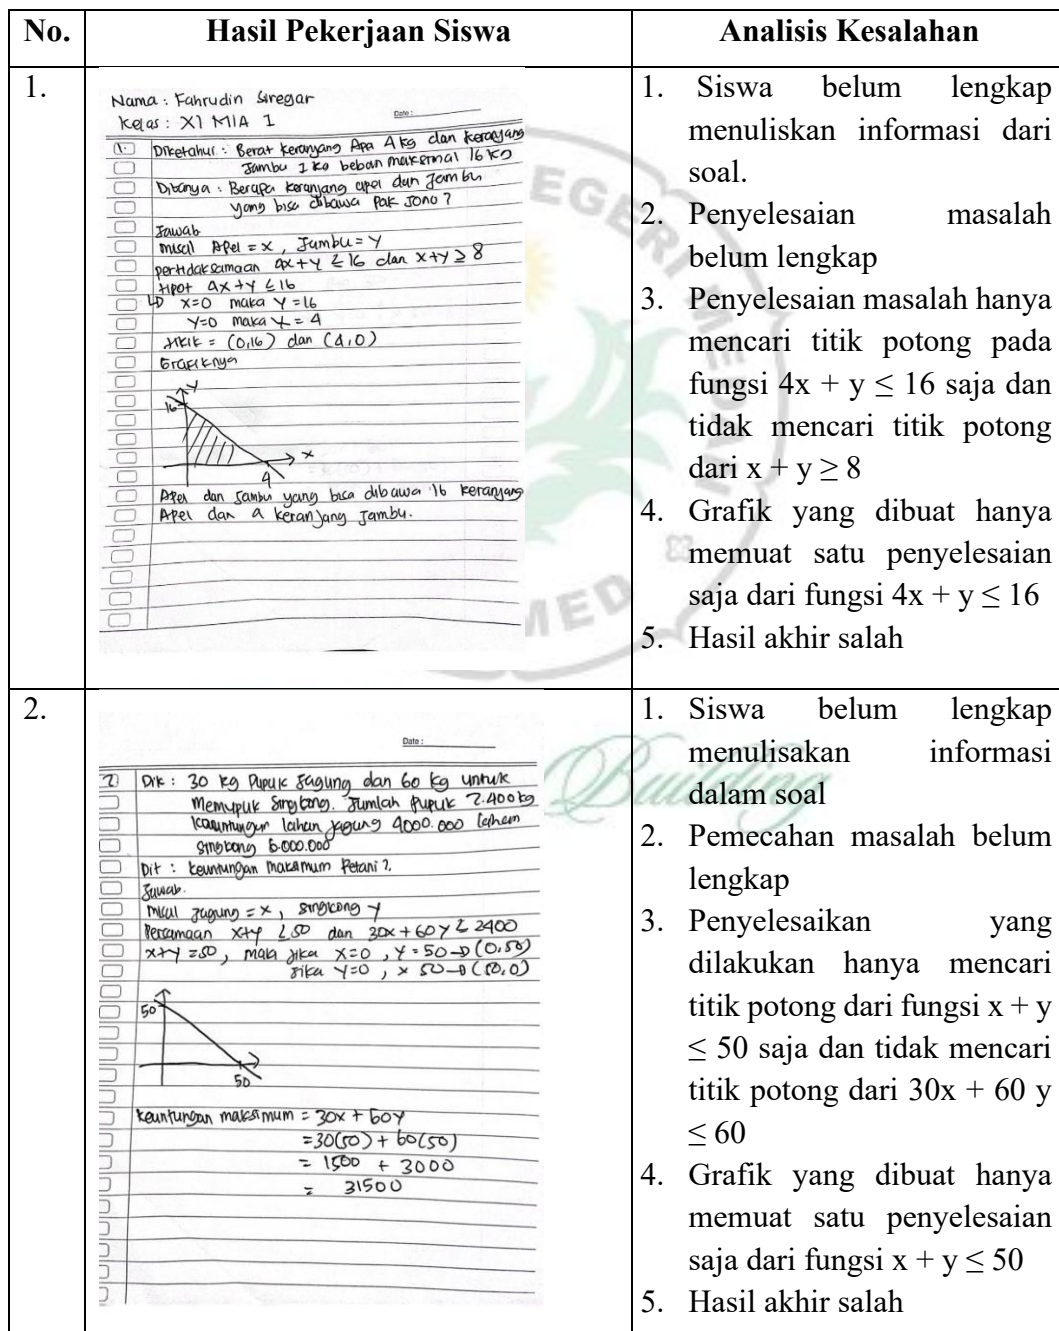 No.
Hasil Pekerjaan Siswa
Analisis Kesalahan
1.
Nama : Fahrudin Siregar
Kelas : XI MIA 1
Date :
1. Diketahui : Berat keranjang Apa 4 kg dan keranjang
Jambu 1 kg beban maksimal 16 kg
Ditanya : Berapa keranjang apel dan Jambu
yang bisa dibawa Pak Jono ?
Jawab
misal Apel = x , Jambu = y
pertidaksamaan 4x + y ≤ 16 dan x+y ≥ 8
tipot 4x + y ≤ 16
x=0 maka y = 16
y=0 maka x = 4
titik = (0,16) dan (4,0)
Grafiknya
y
16
x
4
Apel dan Jambu yang bisa dibawa 16 keranjang
Apel dan 4 keranjang Jambu.
1. Siswa belum lengkap
menuliskan informasi dari
soal.
2. Penyelesaian masalah
belum lengkap
3. Penyelesaian masalah hanya
mencari titik potong pada
fungsi 4x + y ≤ 16 saja dan
tidak mencari titik potong
dari x + y ≥ 8
4. Grafik yang dibuat hanya
memuat satu penyelesaian
saja dari fungsi 4x + y ≤ 16
5. Hasil akhir salah
2.
Date :
2) Dik : 30 kg Pupuk Jagung dan 60 kg untuk
Memupuk Singkong. Jumlah Pupuk 2.400 kg
keuntungan lahan jagung 4000.000 lahan
singkong 6.000.000
Dit : keuntungan maksimum Petani ?.
Jawab.
misal jagung = x , singkong y
Persamaan x+y ≤ 50 dan 30x + 60y ≤ 2400
x+y = 50 , maka jika x=0 , y = 50 → (0,50)
jika y=0 , x 50 → (50,0)
50
50
keuntungan maksimum = 30x + 60y
= 30(50) + 60(50)
= 1500 + 3000
= 31500
1. Siswa belum lengkap
menulisakan informasi
dalam soal
2. Pemecahan masalah belum
lengkap
3. Penyelesaikan yang
dilakukan hanya mencari
titik potong dari fungsi x + y
≤ 50 saja dan tidak mencari
titik potong dari 30x + 60 y
≤ 60
4. Grafik yang dibuat hanya
memuat satu penyelesaian
saja dari fungsi x + y ≤ 50
5. Hasil akhir salah
EGERI MEDAN
IMED
Building